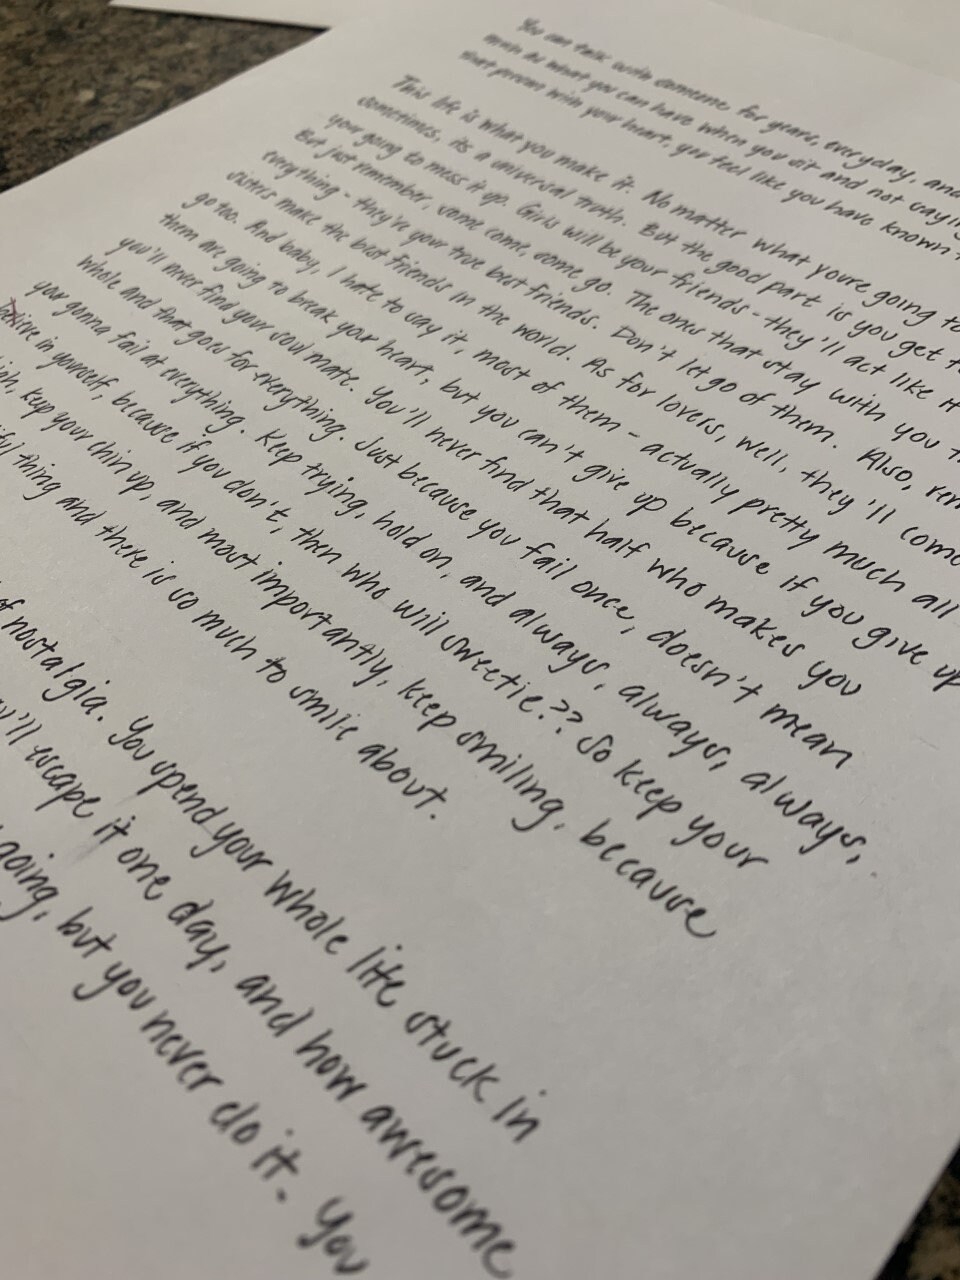 You can talk with someone for years, everyday, and
mean as what you can have when you sit and not saying
that person with your heart, you feel like you have known
This life is what you make it. No matter what, youre going to
sometimes, its a universal truth. But the good part is you get to
your going to mess it up. Girls will be your friends - they'll act like it
But just remember, some come, some go. The ones that stay with you
everything - they're your true best friends. Don't let go of them. Also, rem
sisters make the best friends in the world. As for lovers, well, they'll come
go too. And baby, I hate to say it, most of them - actually pretty much all
them are going to break your heart, but you can't give up because if you give up
you'll never find your soulmate. You'll never find that half who makes you
whole and that goes for everything. Just because you fail once, doesn't mean
your gonna fail at everything. Keep trying, hold on, and always, always, always,
in yourself, because if you don't, then who will sweetie?? So keep your
keep your chin up, and most importantly, keep smiling, because
thing and there is so much to smile about.
of nostalgia. You spend your whole life stuck in
escape it one day, and how awesome
going, but you never do it. You